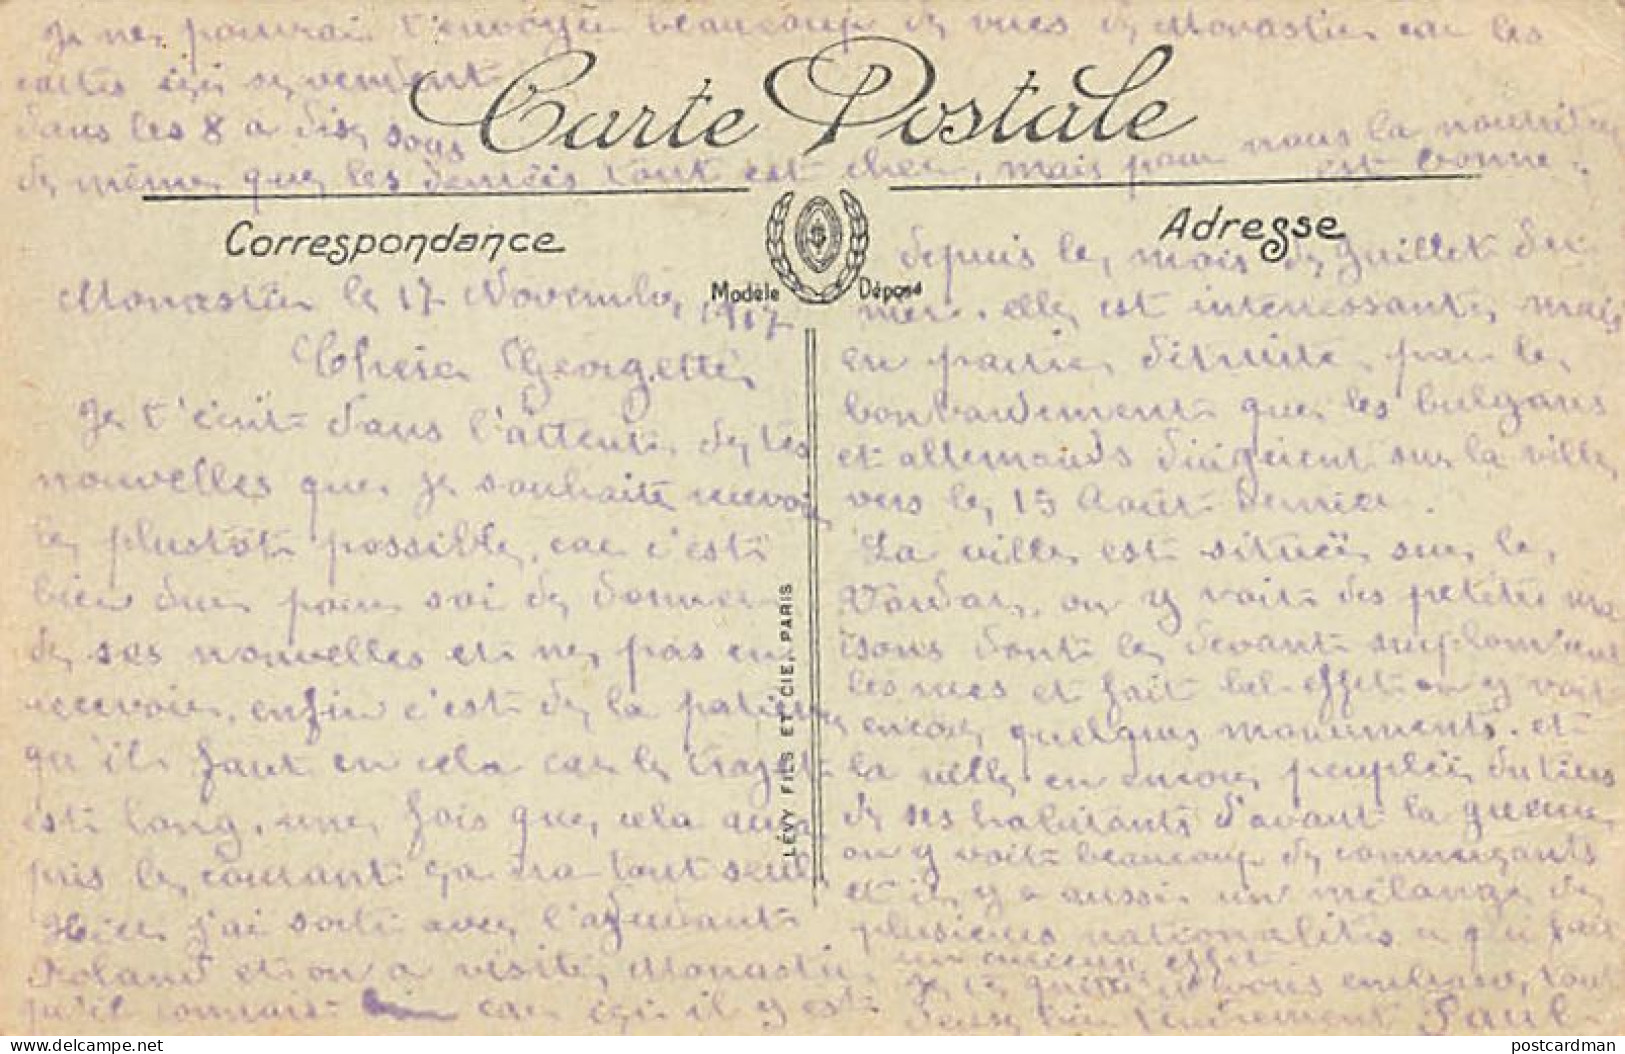 Je ne pourrai t'envoyer beaucoup de vues de Monastir car les
cartes ici se vendent
dans les 8 a dix sous
de même que les denréis tout est cher, mais pour nous la nourriture
est bonne.
Carte Postale
Correspondance
Adresse
Modèle Déposé
LÉVY FILS ET CIE, PARIS
Monastir le 17 Novembre 1917
Chère Georgette
Je t'écrit dans l'attente de tes
nouvelles que je souhaite recevoir
le plustôt possible, car c'est
bien dur pour soi de donner
de ses nouvelles et ne pas en
recevoir, enfin c'est de la patience
qu'il faut en cela car le trajet
est long, une fois que cela aura
pris le courant ça ira tout seul.
Hier j'ai sorti avec l'adjudant
Roland et on a visité Monastir
qu'il connait car ici il y est
depuis le mois de Juillet der
nier. elle est interressante, mais
en partie détruite par le
bonbardement que les bulgars
et allemands dirigeient sur la ville
vers le 15 Août dernier.
La ville est située sur le
Vardar, on y voit des petites ma
isons dont le devant surplombent
les rues et fait bel effet on y voit
encore quelques monuments. et
la ville en encore peuplée du tiers
de ses habitants d'avant la guerre
on y voit beaucoup de commerçants
et il y a aussi un mélange de
plusieurs nationalités a qui fait
un curieux effet.
Je te quitte vous embrasse tout
deux bien tendrement Paul
postcardman.com
postcardman